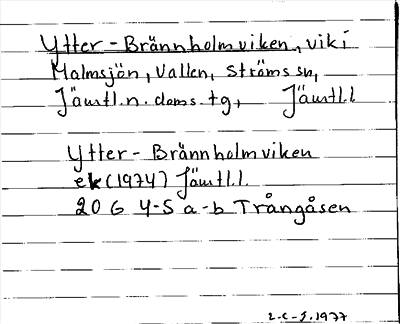 Ytter-Brännholmviken, vik i
Malmsjön, Vallen, Ströms sn,
Jämtl.n. doms. tg, Jämtl.l
Ytter-Brännholmviken
ek (1974) Jämtl.l.
20 G 4-5 a-b Trångåsen
2-c-J. 1977